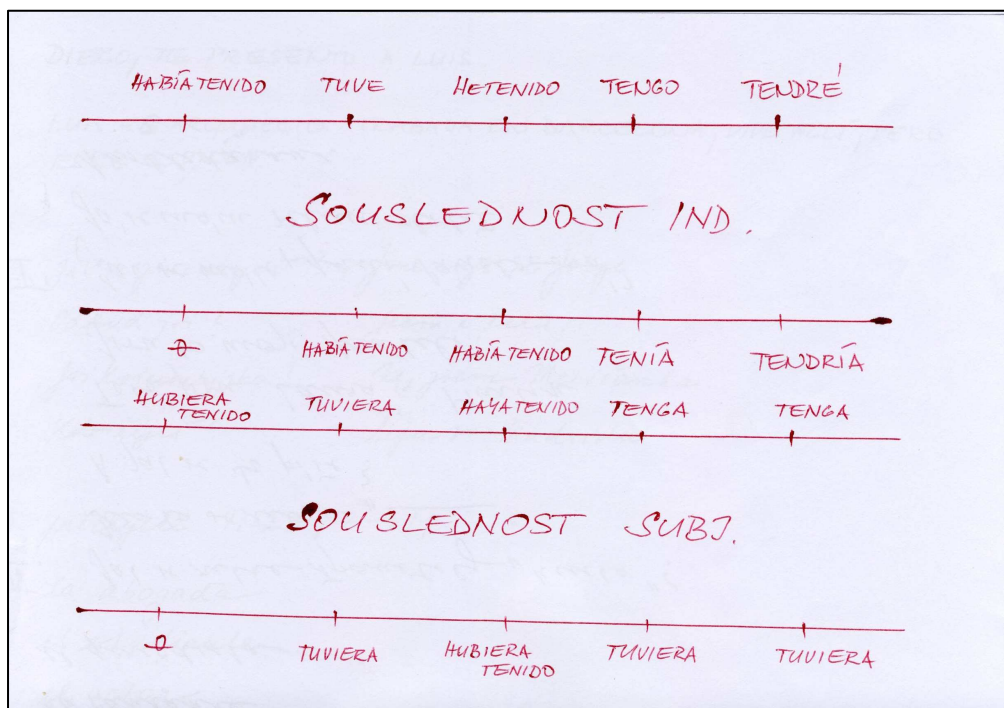 HABÍA TENIDO TUVE HE TENIDO TENGO TENDRÉ
SOUSLEDNOST IND.
0 HABÍA TENIDO HABÍA TENIDO TENÍA TENDRÍA
HUBIERA TENIDO TUVIERA HAYA TENIDO TENGA TENGA
SOUSLEDNOST SUBJ.
0 TUVIERA HUBIERA TENIDO TUVIERA TUVIERA